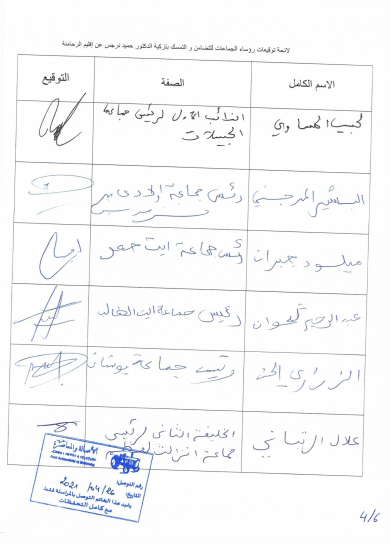 لائحة توقيعات رؤساء الجماعات للتضامن و التمسك بتزكية الدكتور حميد نرجس عن إقليم الرحامنة
الاسم الكامل الصفة التوقيع
النائب الأول لرئيس جماعة
الجبيلات
البشير المرجني رئس جماعة اولاد
ميلود جبران رئس جماعة ايت حمو
عبد الرحيم رئيس جماعة ايت الطالب
الزراري رئيس جماعة بوشان
علال الخليفة الثاني لرئيس
جماعة انزالت لعظم
الأصالة والمعاصرة
رقم التوصل:
التاريخ: 2021/04/26
يشهد هذا الختم التوصل بالمراسلة فقط
مع كامل التحفظات
4/6